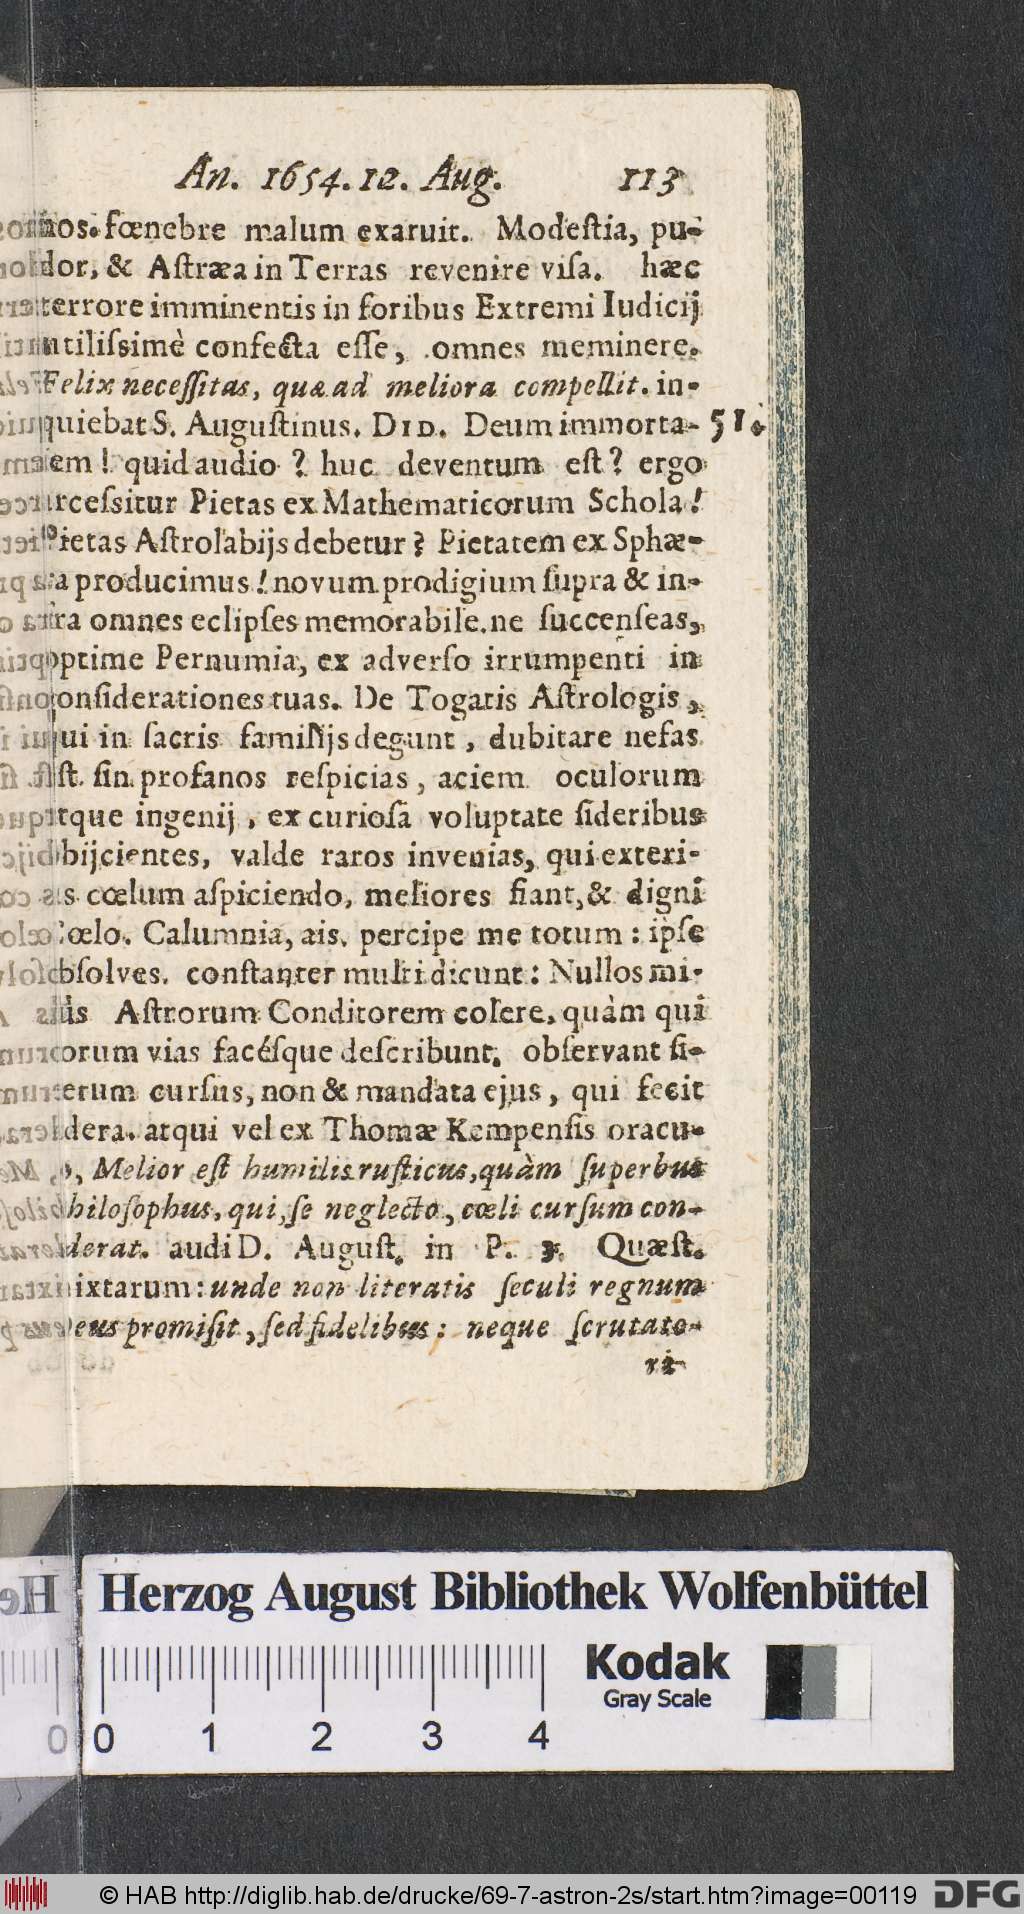 An. 1654. 12. Aug. 113
nos. fœnebre malum exaruit. Modeſtia, pu-
dor, & Aſtræa in Terras revenire viſa. hæc
terrore imminentis in foribus Extremi Iudicij
utiliſsimè confecta eſſe, omnes meminere.
Felix neceſſitas, quæ ad meliora compellit. in-
quiebat S. Auguſtinus. DID. Deum immorta- 51.
em! quid audio? huc deventum eſt? ergo
rceſsitur Pietas ex Mathematicorum Schola!
Pietas Aſtrolabijs debetur? Pietatem ex Sphæ-
a producimus! novum prodigium ſupra & in-
ra omnes eclipſes memorabile. ne ſuccenſeas,
optime Pernumia, ex adverſo irrumpenti in
onſiderationes tuas. De Togatis Aſtrologis,
ui in ſacris familijs degunt, dubitare nefas
ſt. ſin profanos reſpicias, aciem oculorum
tque ingenij, ex curioſâ voluptate ſideribus
bijcientes, valde raros invenias, qui exteri-
s cœlum aſpiciendo, meliores fiant, & digni
Cœlo. Calumnia, ais. percipe me totum: ipſe
bſolves. conſtanter multi dicunt: Nullos mi-
us Aſtrorum Conditorem colere, quàm qui
orum vias facéſque deſcribunt. obſervant ſi-
erum curſus, non & mandata ejus, qui fecit
dera. atqui vel ex Thomæ Kempenſis oracu-
o, Melior eſt humilis ruſticus, quàm ſuperbus
hiloſophus, qui, ſe neglecto, cœli curſum con-
derat. audi D. Auguſt. in P. 3. Quæſt.
ixtarum: unde non literatis ſeculi regnum
eus promiſit, ſed fidelibus: neque ſcrutato-
ri-
Herzog August Bibliothek Wolfenbüttel
Kodak
Gray Scale
0 0 1 2 3 4
© HAB http://diglib.hab.de/drucke/69-7-astron-2s/start.htm?image=00119
DFG